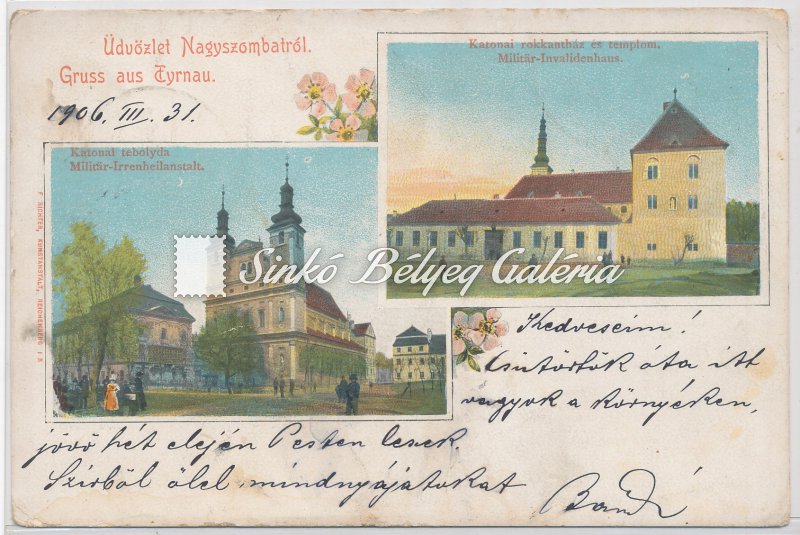 Üdvözlet Nagyszombatról.
Gruss aus Tyrnau.
1906. III. 31.
Katonai rokkantház és templom.
Militär-Invalidenhaus.
Katonai tébolyda
Militär-Irrenheilanstalt.
F. RICHTER, KUNSTANSTALT, REICHENBERG I. B.
Sinkó Bélyeg Galéria
Kedveseim!
Csütörtök óta itt
vagyok a környéken,
jövő hét elején Pesten leszek.
Szivből ölel mindnyájatokat
Bandi